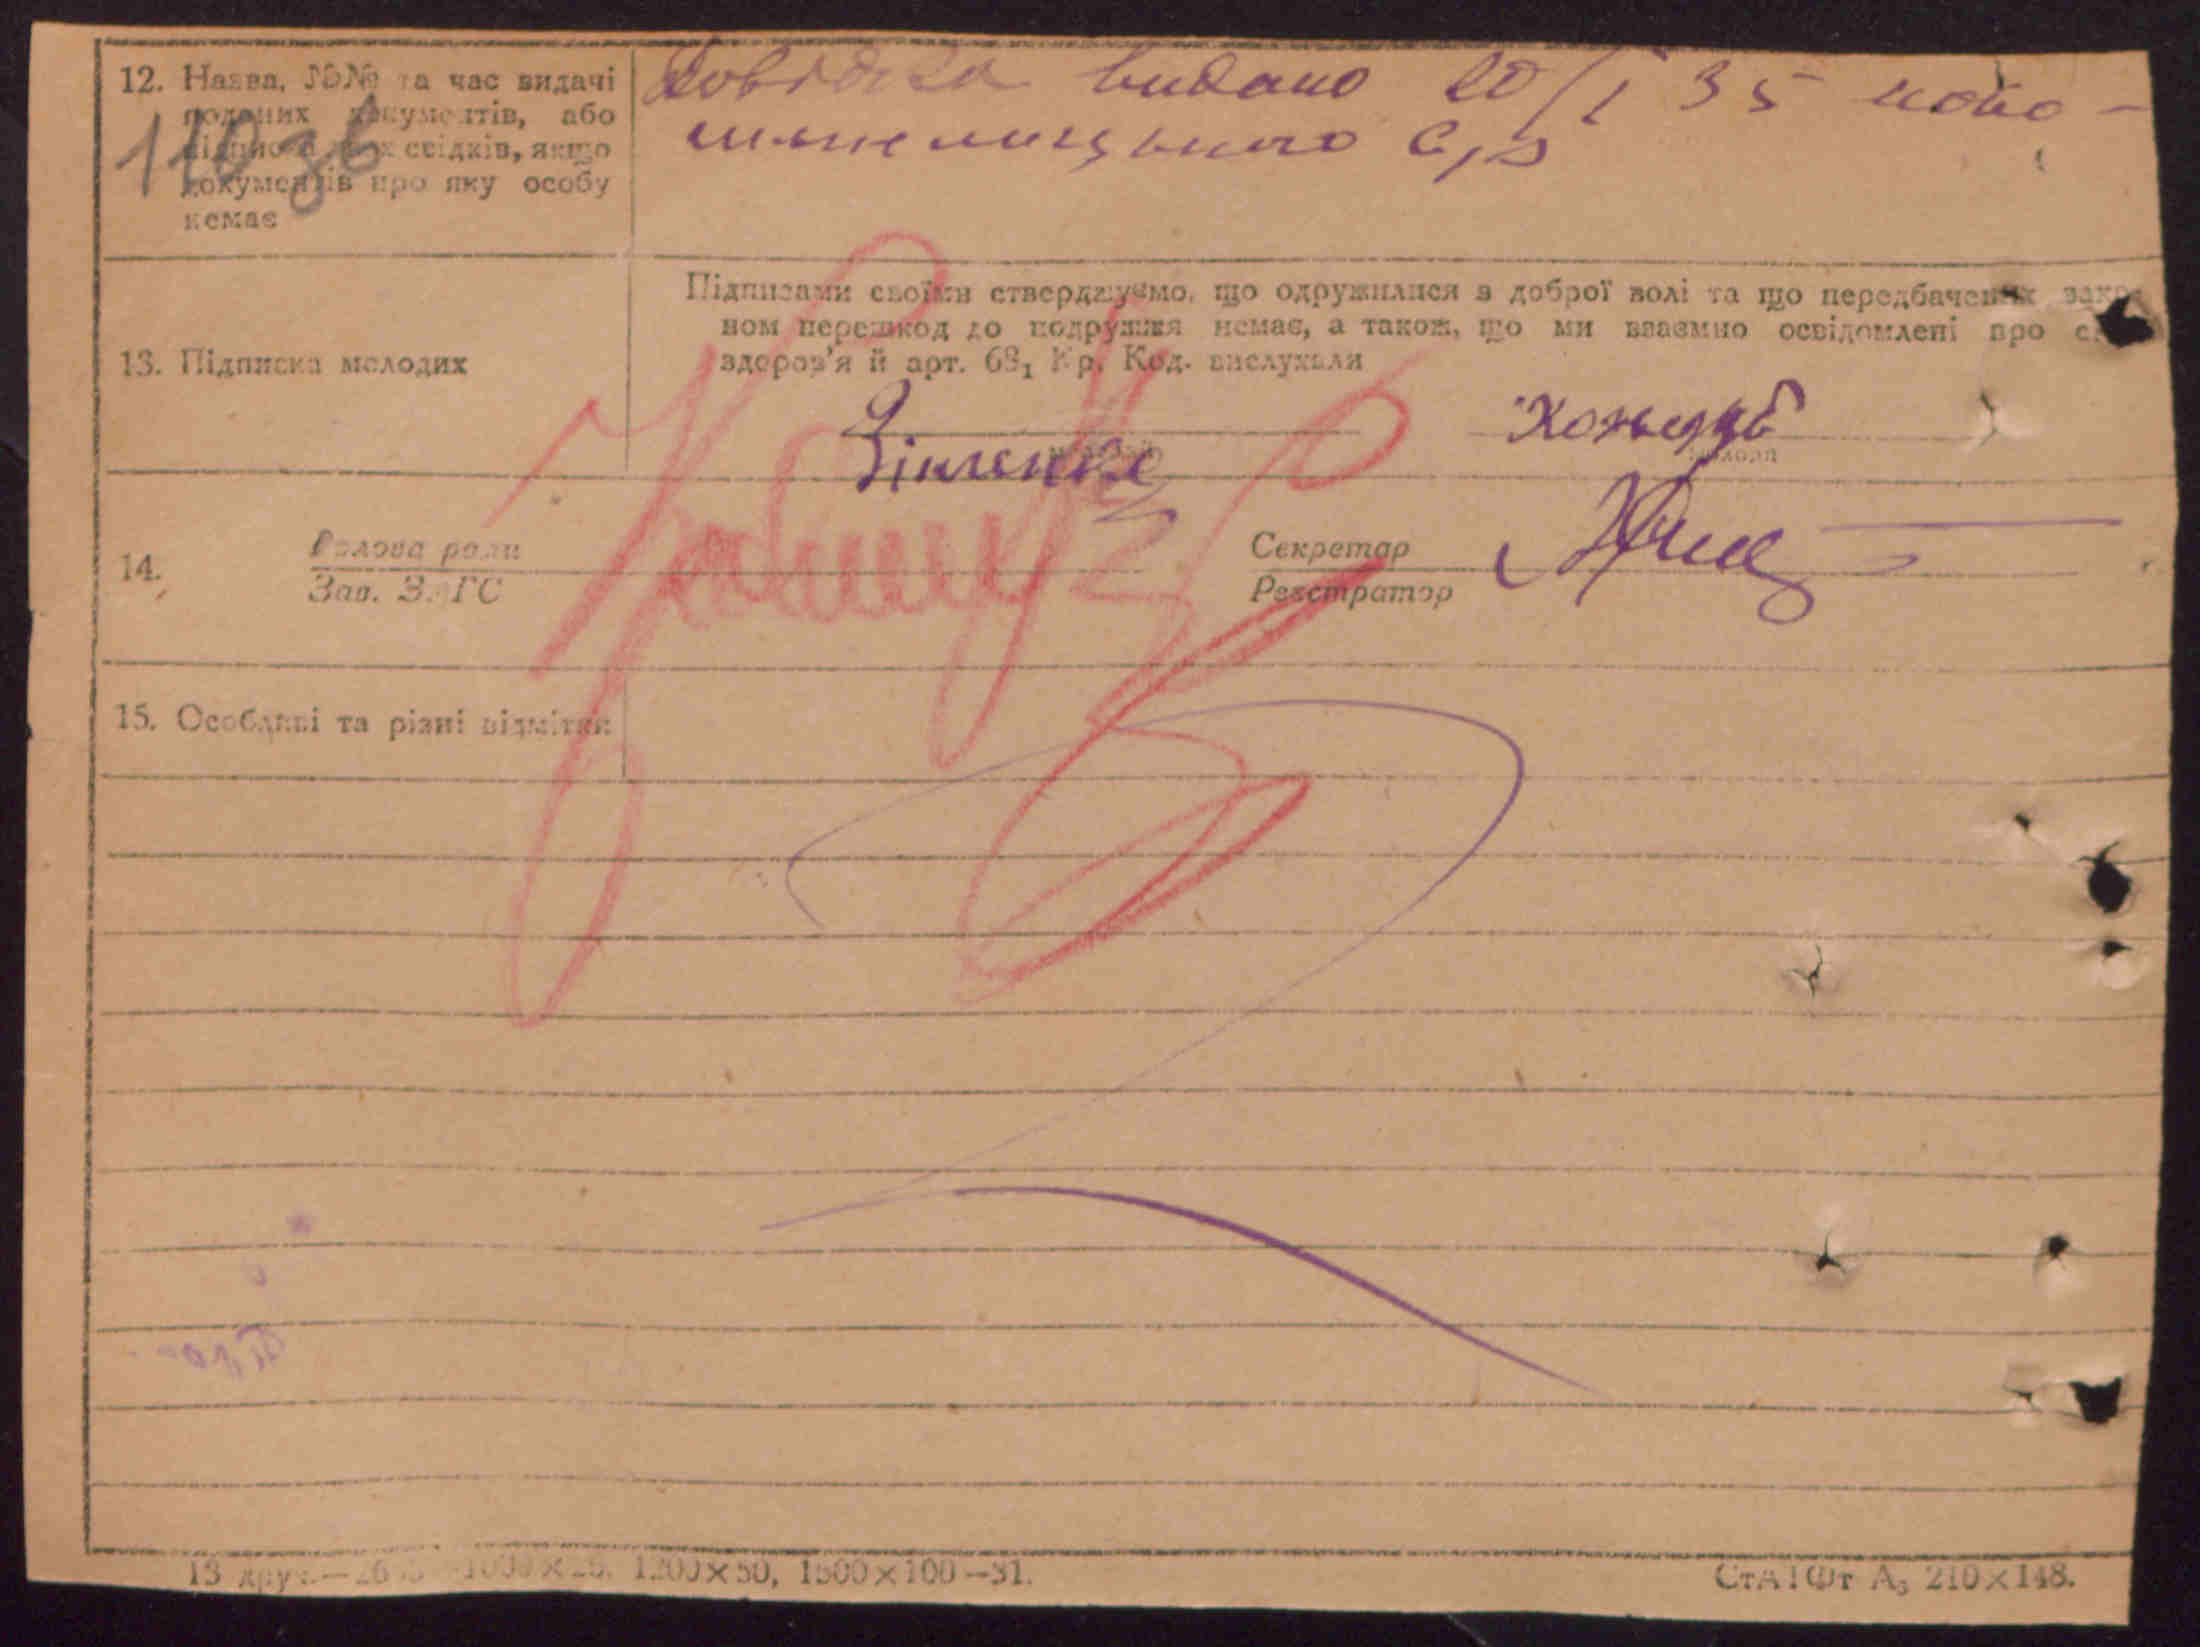 12. Назва, №№ та час видачі
поданих документів, або
підписка двох свідків, якщо
документів про яку особу
немає
110 зв
Довідка видано 20/I 35 ново-
шепелицького с/р
13. Підписка молодих
Підписами своїми стверджуємо, що одружилися з доброї волі та що передбачених зако-
ном перешкод до подружжя немає, а також, що ми взаємно освідомлені про
здоров'я й арт. 68₁ Кр. Код. вислухали
Зінченко
молода
14.
Голова ради
Зав. ЗАГС
Секретар
Реєстратор
15. Особливі та різні відмітки
13 друк.— 1200×50, 1500×100—31.
СтАТФт А₅ 210×148.